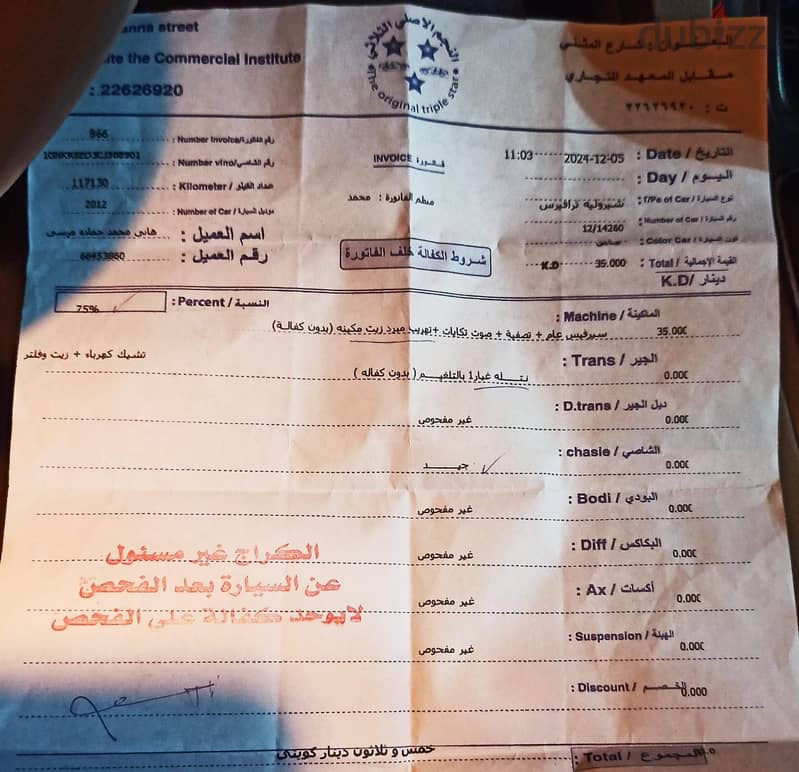 anna street
ite the Commercial Institute
: 22626920
النجم الاصلي الثلاثي
the original triple star
العنوان : شارع المثنى
مقابل المعهد التجاري
ت : ٢٢٦٢٦٩٢٠
dubizzle
966 : Number Invoice/رقم الفاتورة
فاتورة INVOICE
التاريخ / Date : 2024-12-05 11:03
: Number vino/رقم الشاسي
اليوم / Day :
117130 : Kilometer / عداد الكيلو
منظم الفاتورة : محمد
نوع السيارة / T/Pe of Car : شيفروليه ترافيرس
2012 : Number of Car / موديل السيارة
رقم السيارة / Number of Car : 12/14260
اسم العميل : هاني محمد حماده مرسى
لون السيارة / Color Car :
رقم العميل : 66453860
شروط الكفالة خلف الفاتورة
القيمة الإجمالية / Total : 35.000 K.D
دينار / K.D
النسبة / Percent : 75%
الماكينة / Machine :
سيرفيس عام + تصفية + صوت تكايات + تهريب مبرد زيت مكينه (بدون كفالة) 35.000
تشيك كهرباء + زيت وفلتر
الجير / Trans :
نتله غيار1 بالتلغيم ( بدون كفاله ) 0.000
دبل الجير / D.trans :
غير مفحوص 0.000
الشاصي / chasie :
جيد 0.000
البودي / Bodi :
غير مفحوص 0.000
البكاكس / Diff :
غير مفحوص 0.000
أكسات / Ax :
غير مفحوص 0.000
الهيئة / Suspension :
غير مفحوص 0.000
الكراج غير مسئول
عن السيارة بعد الفحص
لايوجد كفالة على الفحص
الخصم / Discount : 0.000
المجموع / Total :
خمس و ثلاثون دينار كويتي